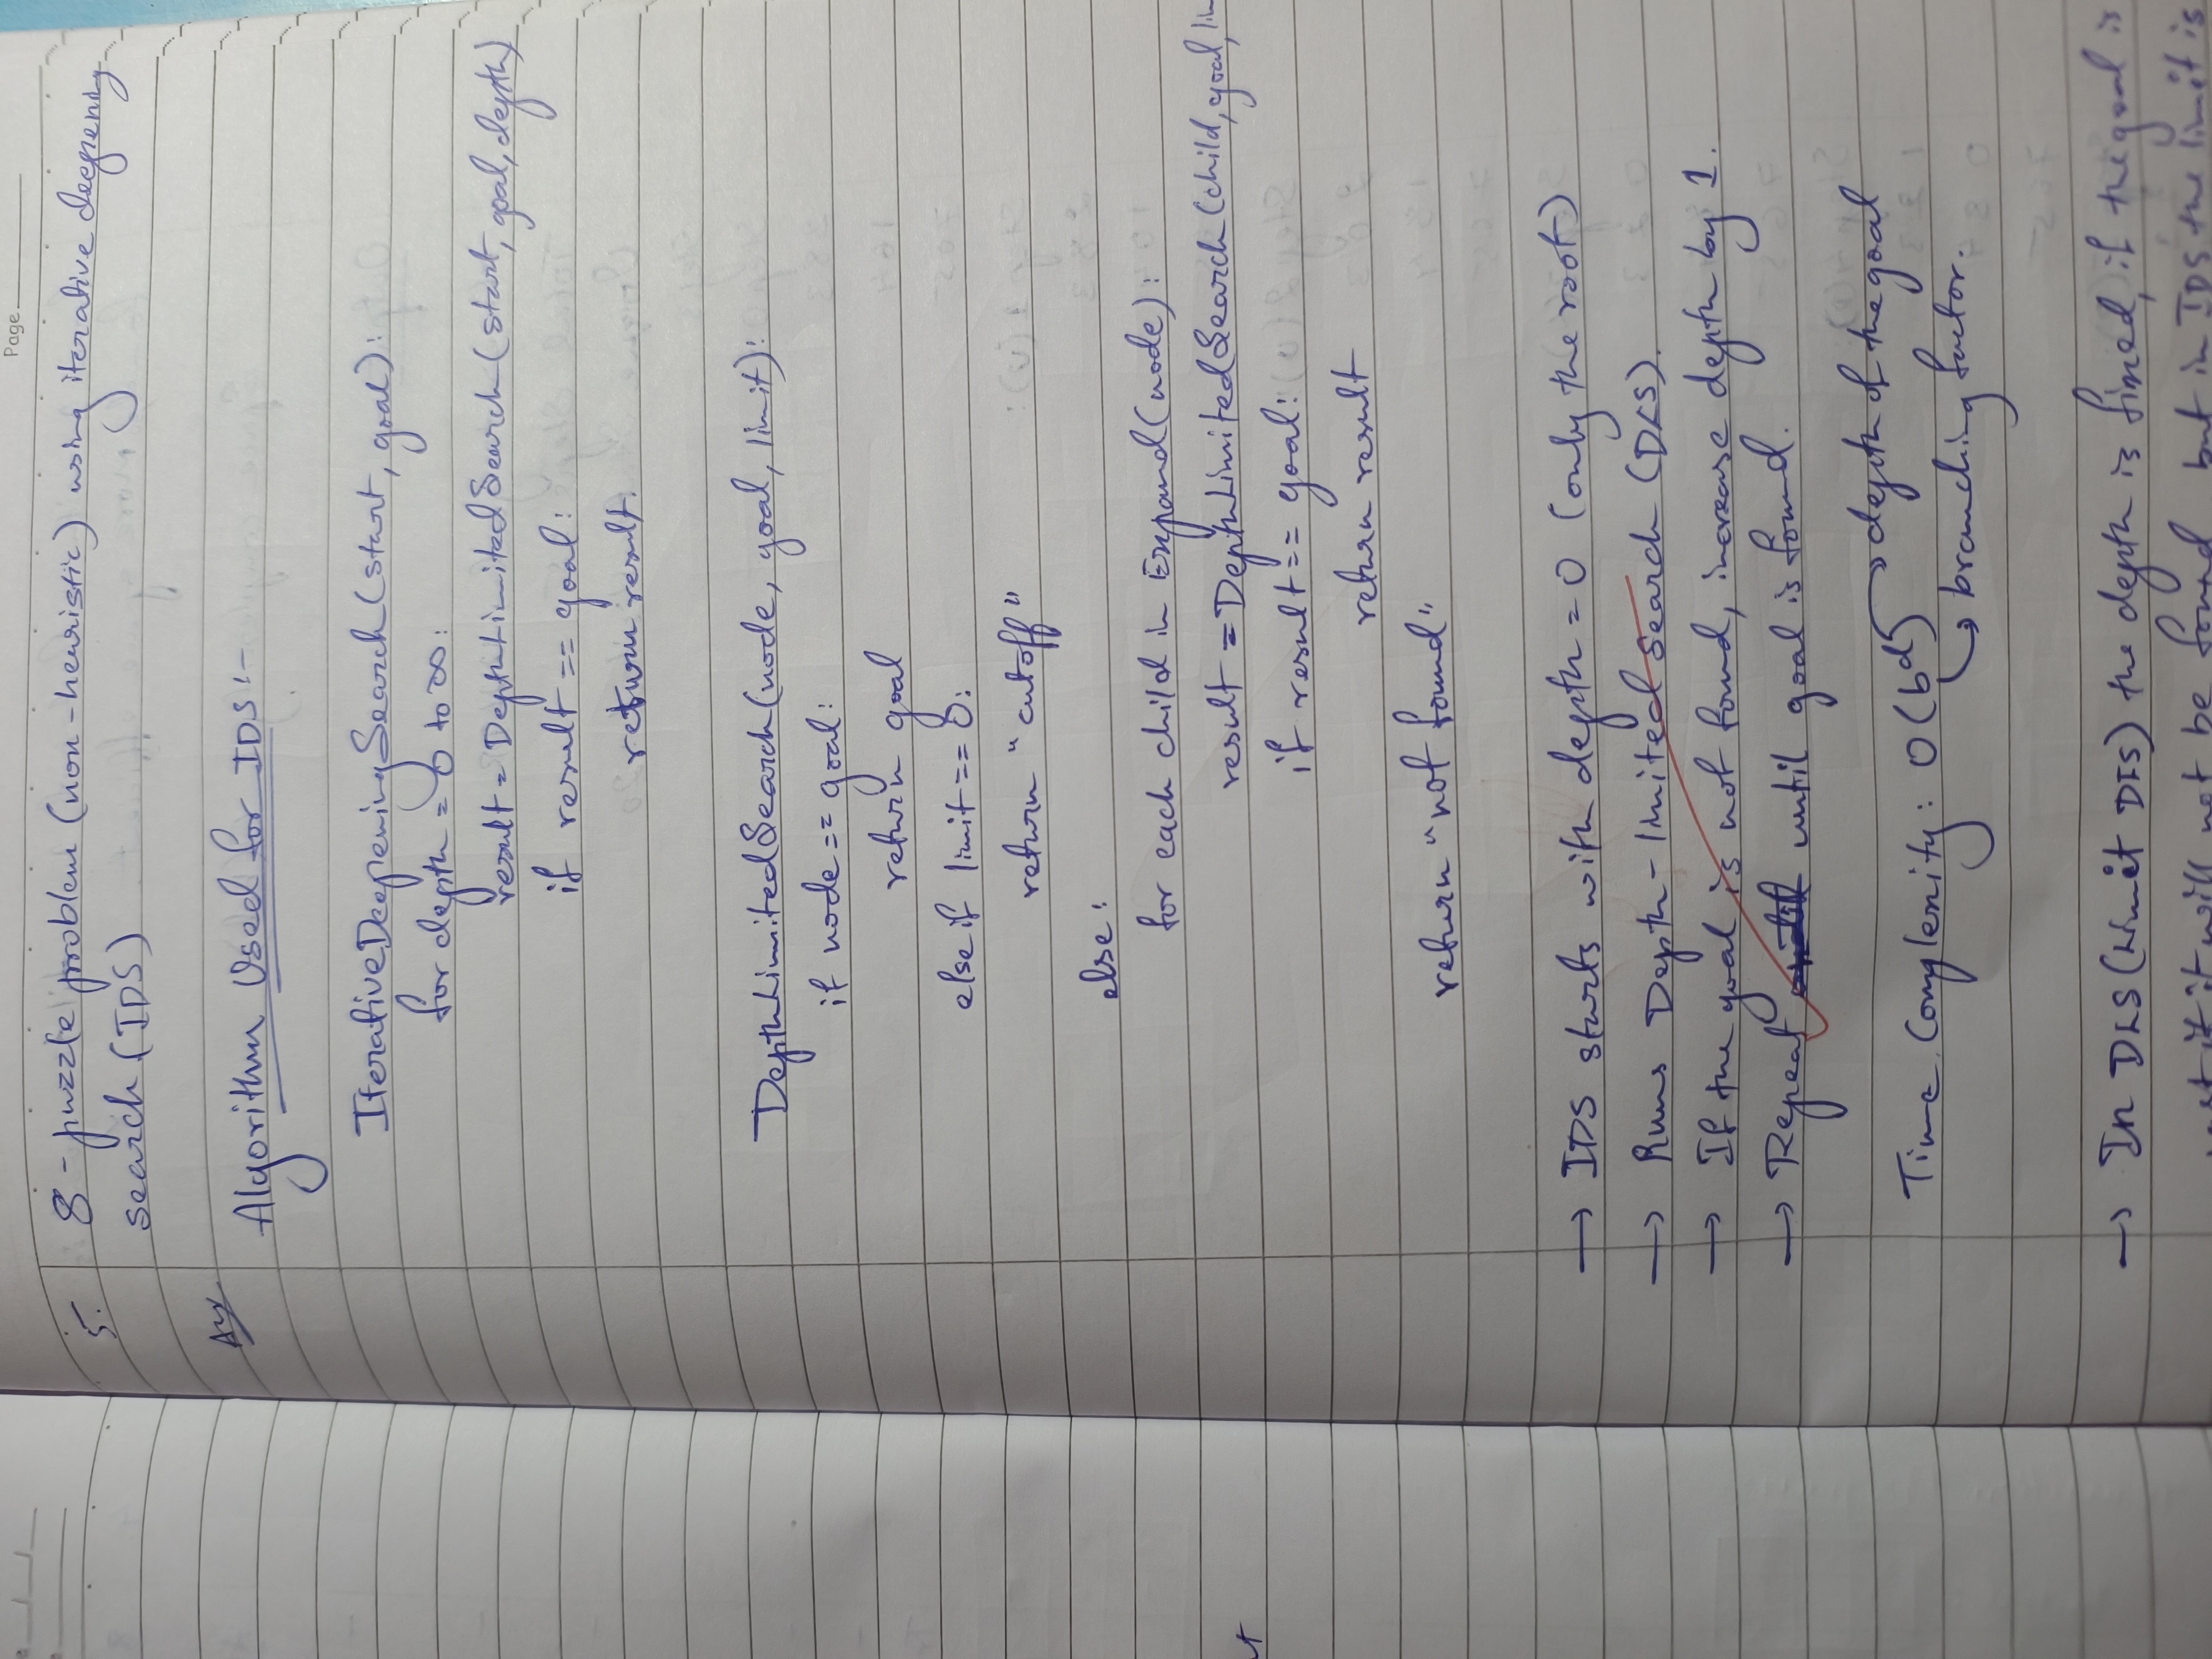 Page
5. 8-puzzle problem (non-heuristic) using iterative deepening
search (IDS)
Ans
Algorithm Used for IDS:-
IterativeDeepeningSearch(start, goal):
for depth = 0 to ∞:
result = DepthLimitedSearch(start, goal, depth)
if result == goal:
return result.
DepthLimitedSearch(node, goal, limit):
if node == goal:
return goal
else if limit == 0:
return "cutoff"
else:
for each child in Expand(node):
result = DepthLimitedSearch(child, goal, lim
if result == goal:
return result
return "not found"
→ IDS starts with depth = 0 (only the root)
→ Runs Depth-limited Search (DLS).
→ If the goal is not found, increase depth by 1.
→ Repeat until goal is found.
Time Complexity: O(b^d) → depth of the goal
→ branching factor.
→ In DLS (Limit DFS) the depth is fixed, if the goal is
it will not be found, but in IDS the limit is